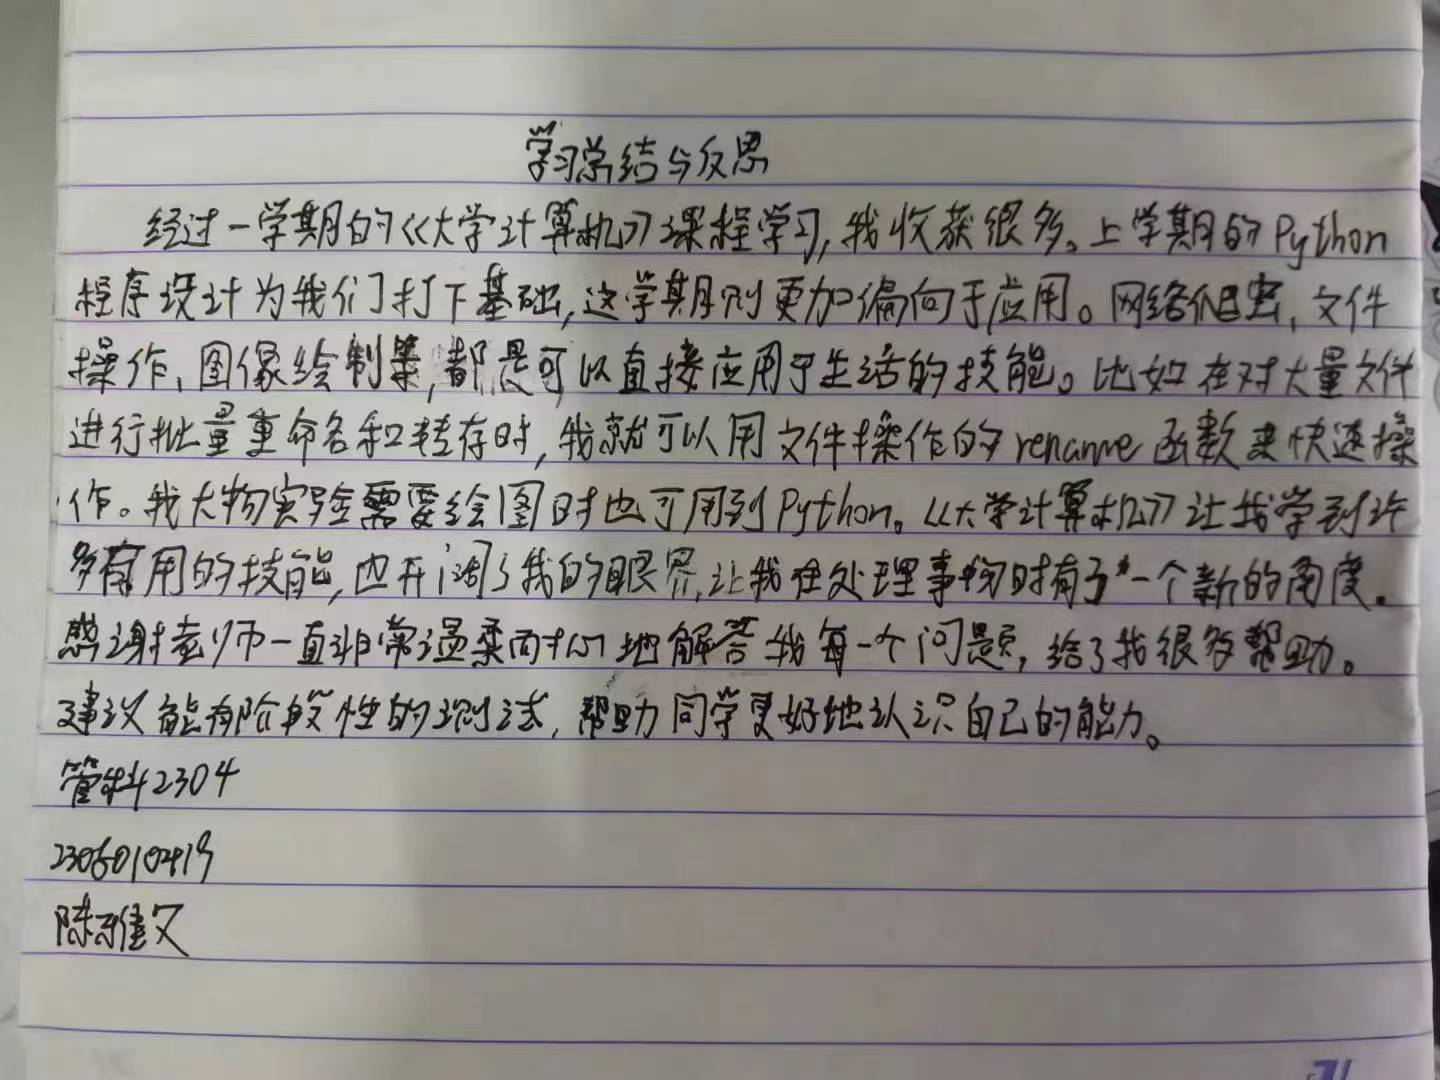 学习总结与反思
经过一学期的《大学计算机》课程学习,我收获很多。上学期的Python
程序设计为我们打下基础,这学期则更加偏向于应用。网络爬虫、文件
操作、图像绘制等,都是可以直接应用于生活的技能。比如在对大量文件
进行批量重命名和转存时,我就可以用文件操作的rename函数来快速操
作。我大物实验需要绘图时也可用到Python。《大学计算机》让我学到许
多有用的技能,也开阔了我的眼界,让我在处理事物时有了一个新的角度。
感谢老师一直非常温柔而耐心地解答我每一个问题,给了我很多帮助。
建议能有阶段性的测试,帮助同学更好地认识自己的能力。
管科2304
陈雅文